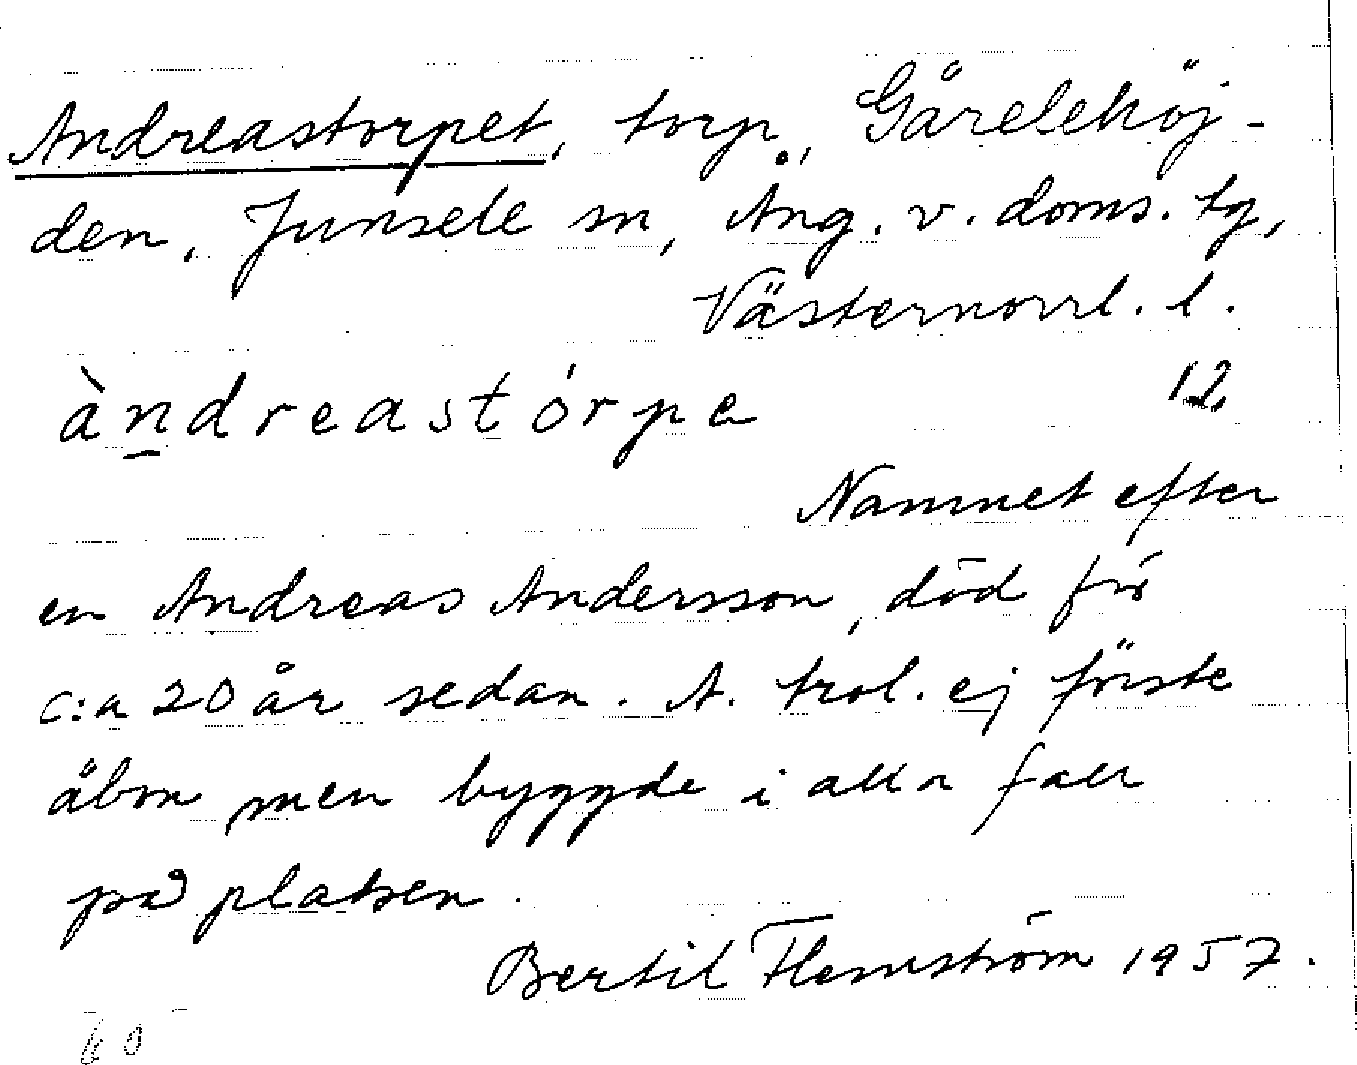 Andreastorpet, torp, Gårelehöj-
den, Junsele sn, Ång. v. doms. tg,
Västernorrl. l.
àndreastórpe 12
Namnet efter
en Andreas Andersson, död för
c:a 20 år sedan. A. trol. ej förste
åbon men byggde i alla fall
på platsen.
Bertil Flemström 1957.
60